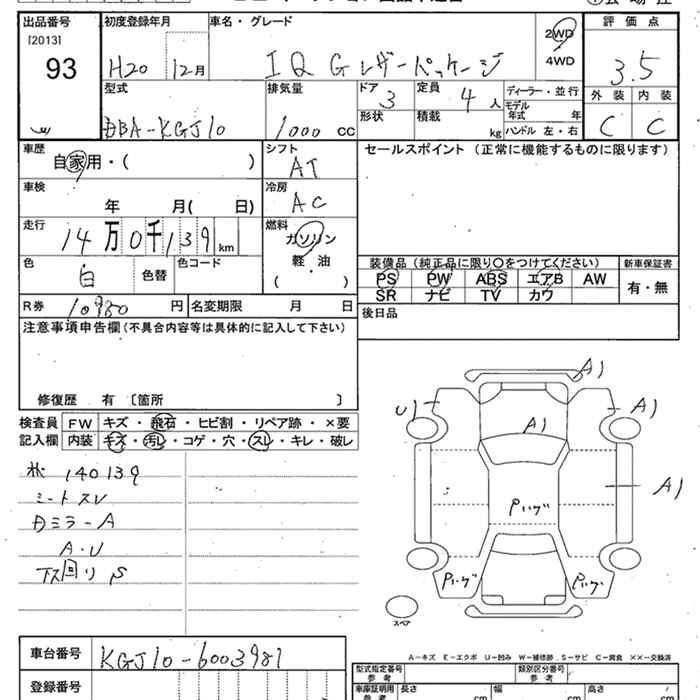 出品番号
[2013]
93
初度登録年月
H20 12月
車名・グレード
I Q G レザーパッケージ
2WD
4WD
評価点
3.5
外装 内装
C C
型式
DBA-KGJ10
排気量
1000 cc
ドア 3
形状
定員 4 人
積載 kg
ディーラー・並行
モデル年式 年
ハンドル 左・右
車歴
自家用・( )
シフト
AT
セールスポイント (正常に機能するものに限ります)
車検
年 月( 日)
冷房
AC
走行
14万0千139km
燃料
ガソリン
軽・油
( )
色
白
色替
色コード
装備品(純正品に限り○をつけてください)
新車保証書
PS PW ABS エアB AW
SR ナビ TV カワ
有・無
R券 10980 円
名変期限 月 日
後日品
注意事項申告欄(不具合内容等は具体的に記入して下さい)
修復歴 有 〔箇所 〕
検査員
記入欄
FW キズ・飛石・ヒビ割・リペア跡・×要
内装 キズ・汚レ・コゲ・穴・スレ・キレ・破レ
140139
ミートスレ
ミラーA
A・U
下回りS
A)
U)
A)
A)
A)
Pいゲ
Pいゲ
Pいゲ
スペア
A-キズ E-エクボ U-凹み W-補修跡 S-サビ C-腐食 ××-交換済
車台番号
KGJ10-6003981
登録番号
型式指定番号
参考
類別区分番号
参考
車庫証明用
参考
長さ cm
幅 cm
高さ cm